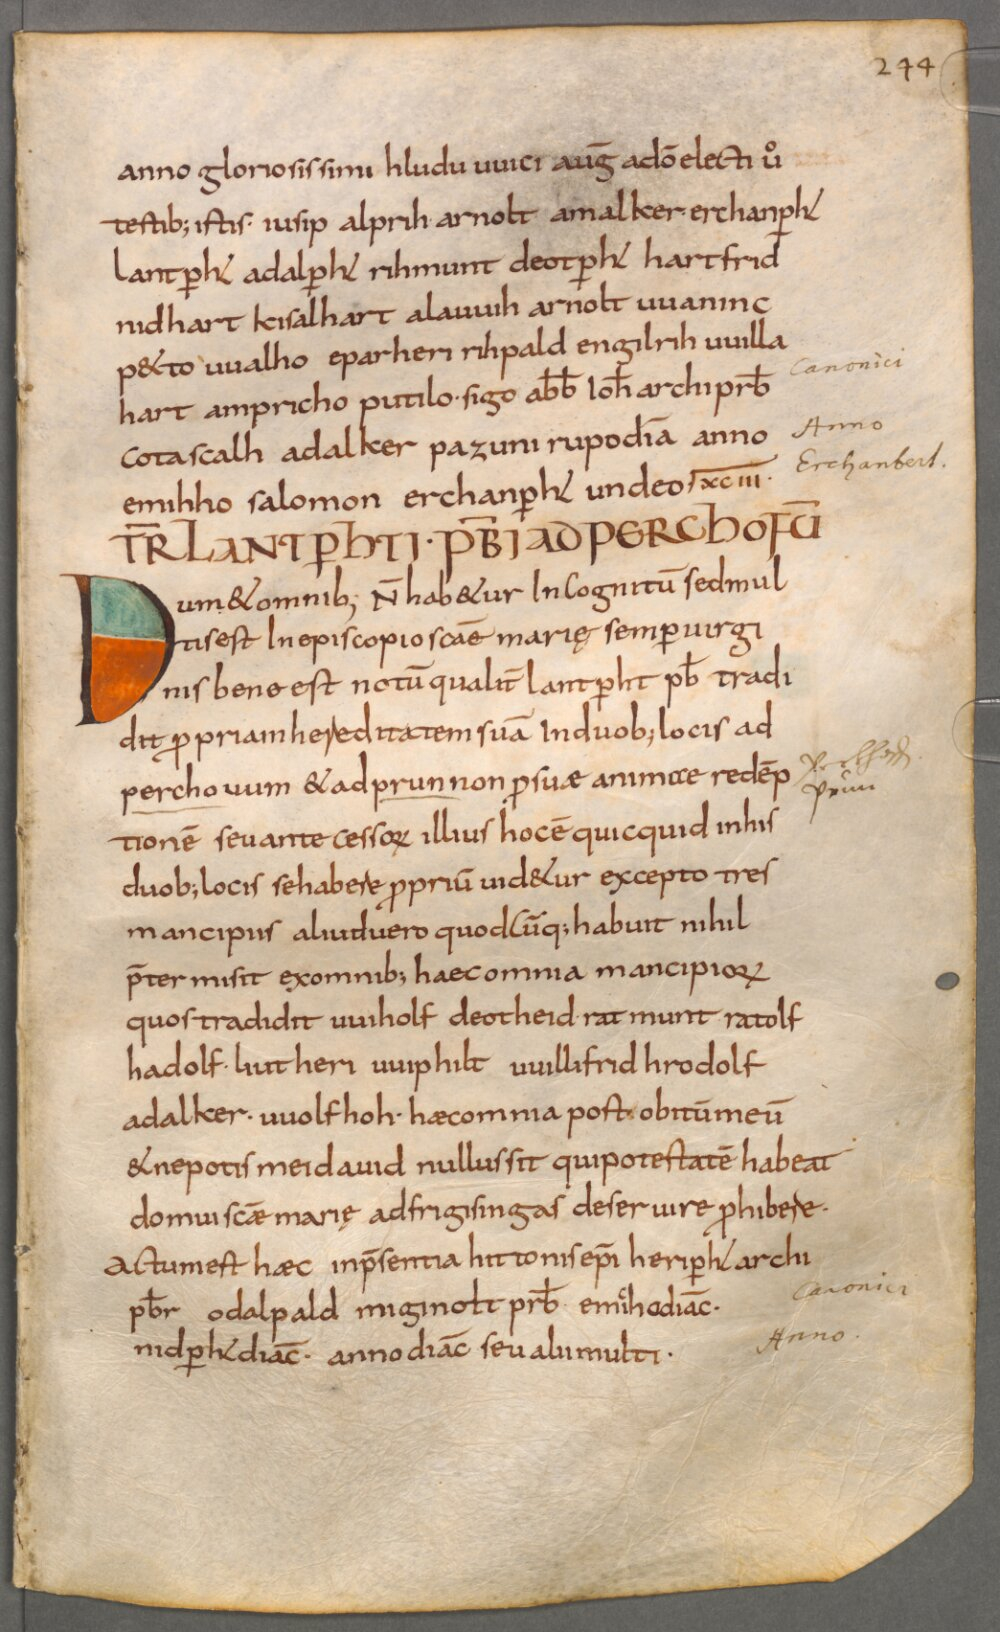 244
anno gloriosissimi hludu uuici aug̅ adō electi uͦ
testib; istis· iusip alprih· arnolt amalker· erchanp̱ħ
lantp̱ħ adalp̱ħ rihmunt deotp̱ħ hartfrid
nidhart kisalhart alauuih arnolt uuaninc
p&to uualho eparheri rihpald engilrih uuilla
Canonici
hart ampricho putilo· sigo ab̅b̅ Ioh̅ archiprb̅
Anno
cotascalh adalker pazuni rupo diā anno
Erchanbert.
emihho salomon erchanp̱ħ undeo sxciii·
TR̅ LANTP̱HTI· PB̅I AD PERCHOFŪ
Dum & omnib; N̅ hab&ur Incognitū sed mul
tis est In episcopio scāe marię semp̱ uirgi
nis bene est notū qualit̅ lantp̱ht pb̅ tradi
dit ꝓpriam hereditatem suā In duob; locis ad
percho uum & ad prunnon ꝓ suae animae redēp
Prūn
tionē seu antecessoꝝ illius hoc ē quicquid in his
duob; locis se habere ꝓpriū uid&ur excepto tres
mancipiis aliut uero quodcūq; habuit nihil
p̄termisit ex omnib; haec omnia mancipioꝝ
quos tradidit uuiholf deotheid· ratmunt ratolf
hadolf· liutheri uuiphilt uuillifrid hrodolf
adalker· uuolfhoh· haec omnia post obitū meū
& nepotis mei dauid nullus sit qui potestatē habeat
domui scāe marię ad frigisingas deseruire ꝓhibere·
Actum est haec in p̄sentia hittonis ep̄i herip̱ħ archi
Canonici
pb̅r odalpald miginolt prb̅ emihho diāc·
Anno.
nidp̱ħ diāc· anno diāc seu alii multi·